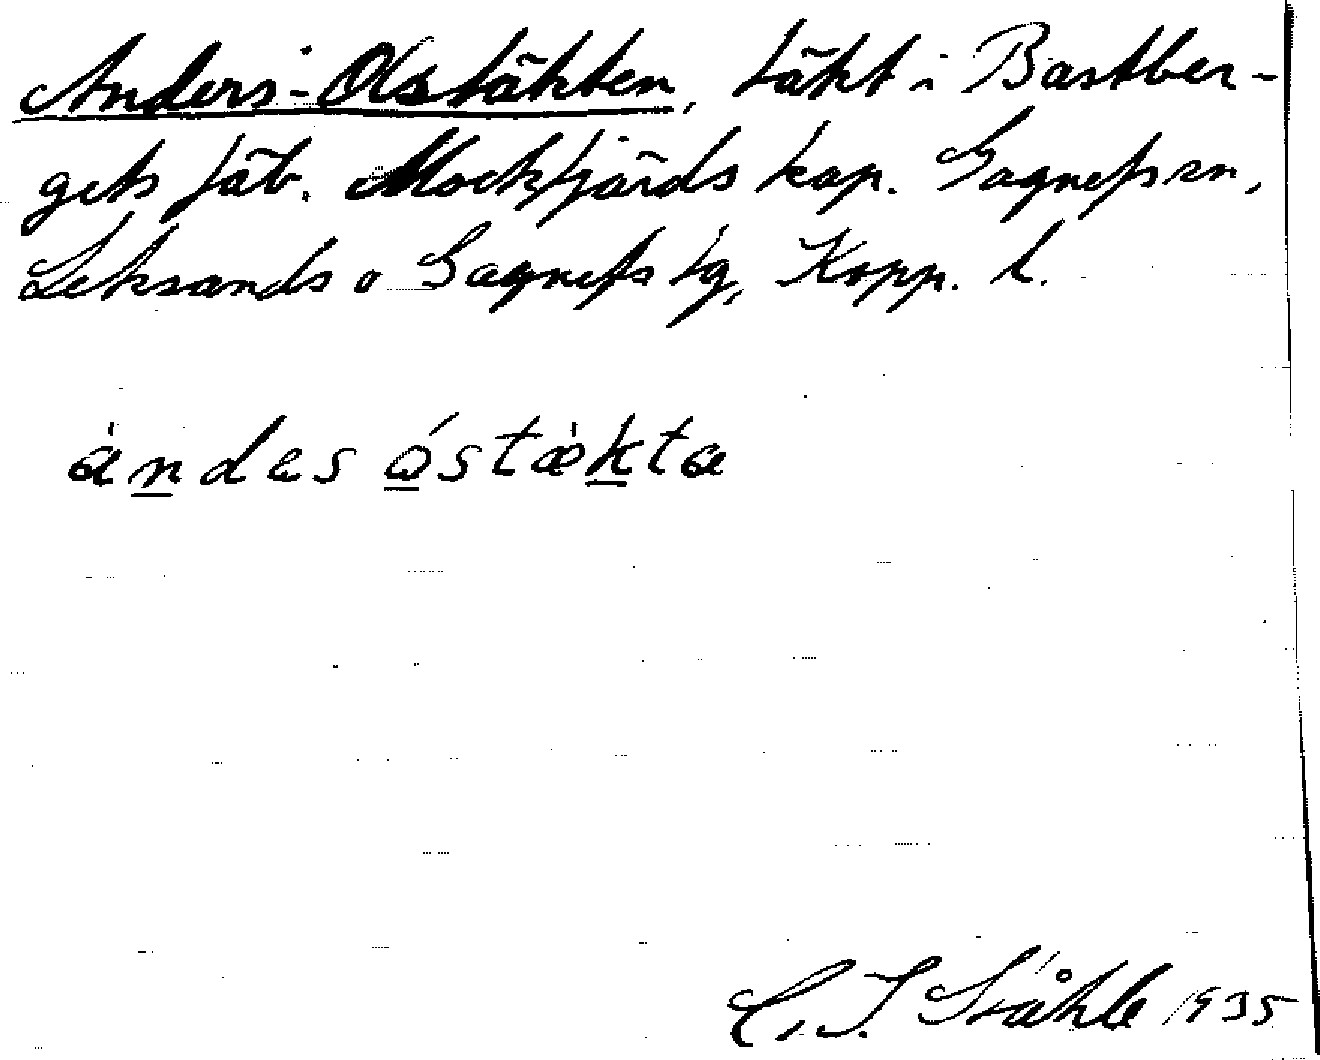 Anders-Olstäkten, täkt i Bastber-
gets fäb. Mockfjärds kap. Gagnefs sn,
Leksands o Gagnefs tg, Kopp. l.
àndas óstækta
C. I. Ståhle 1935